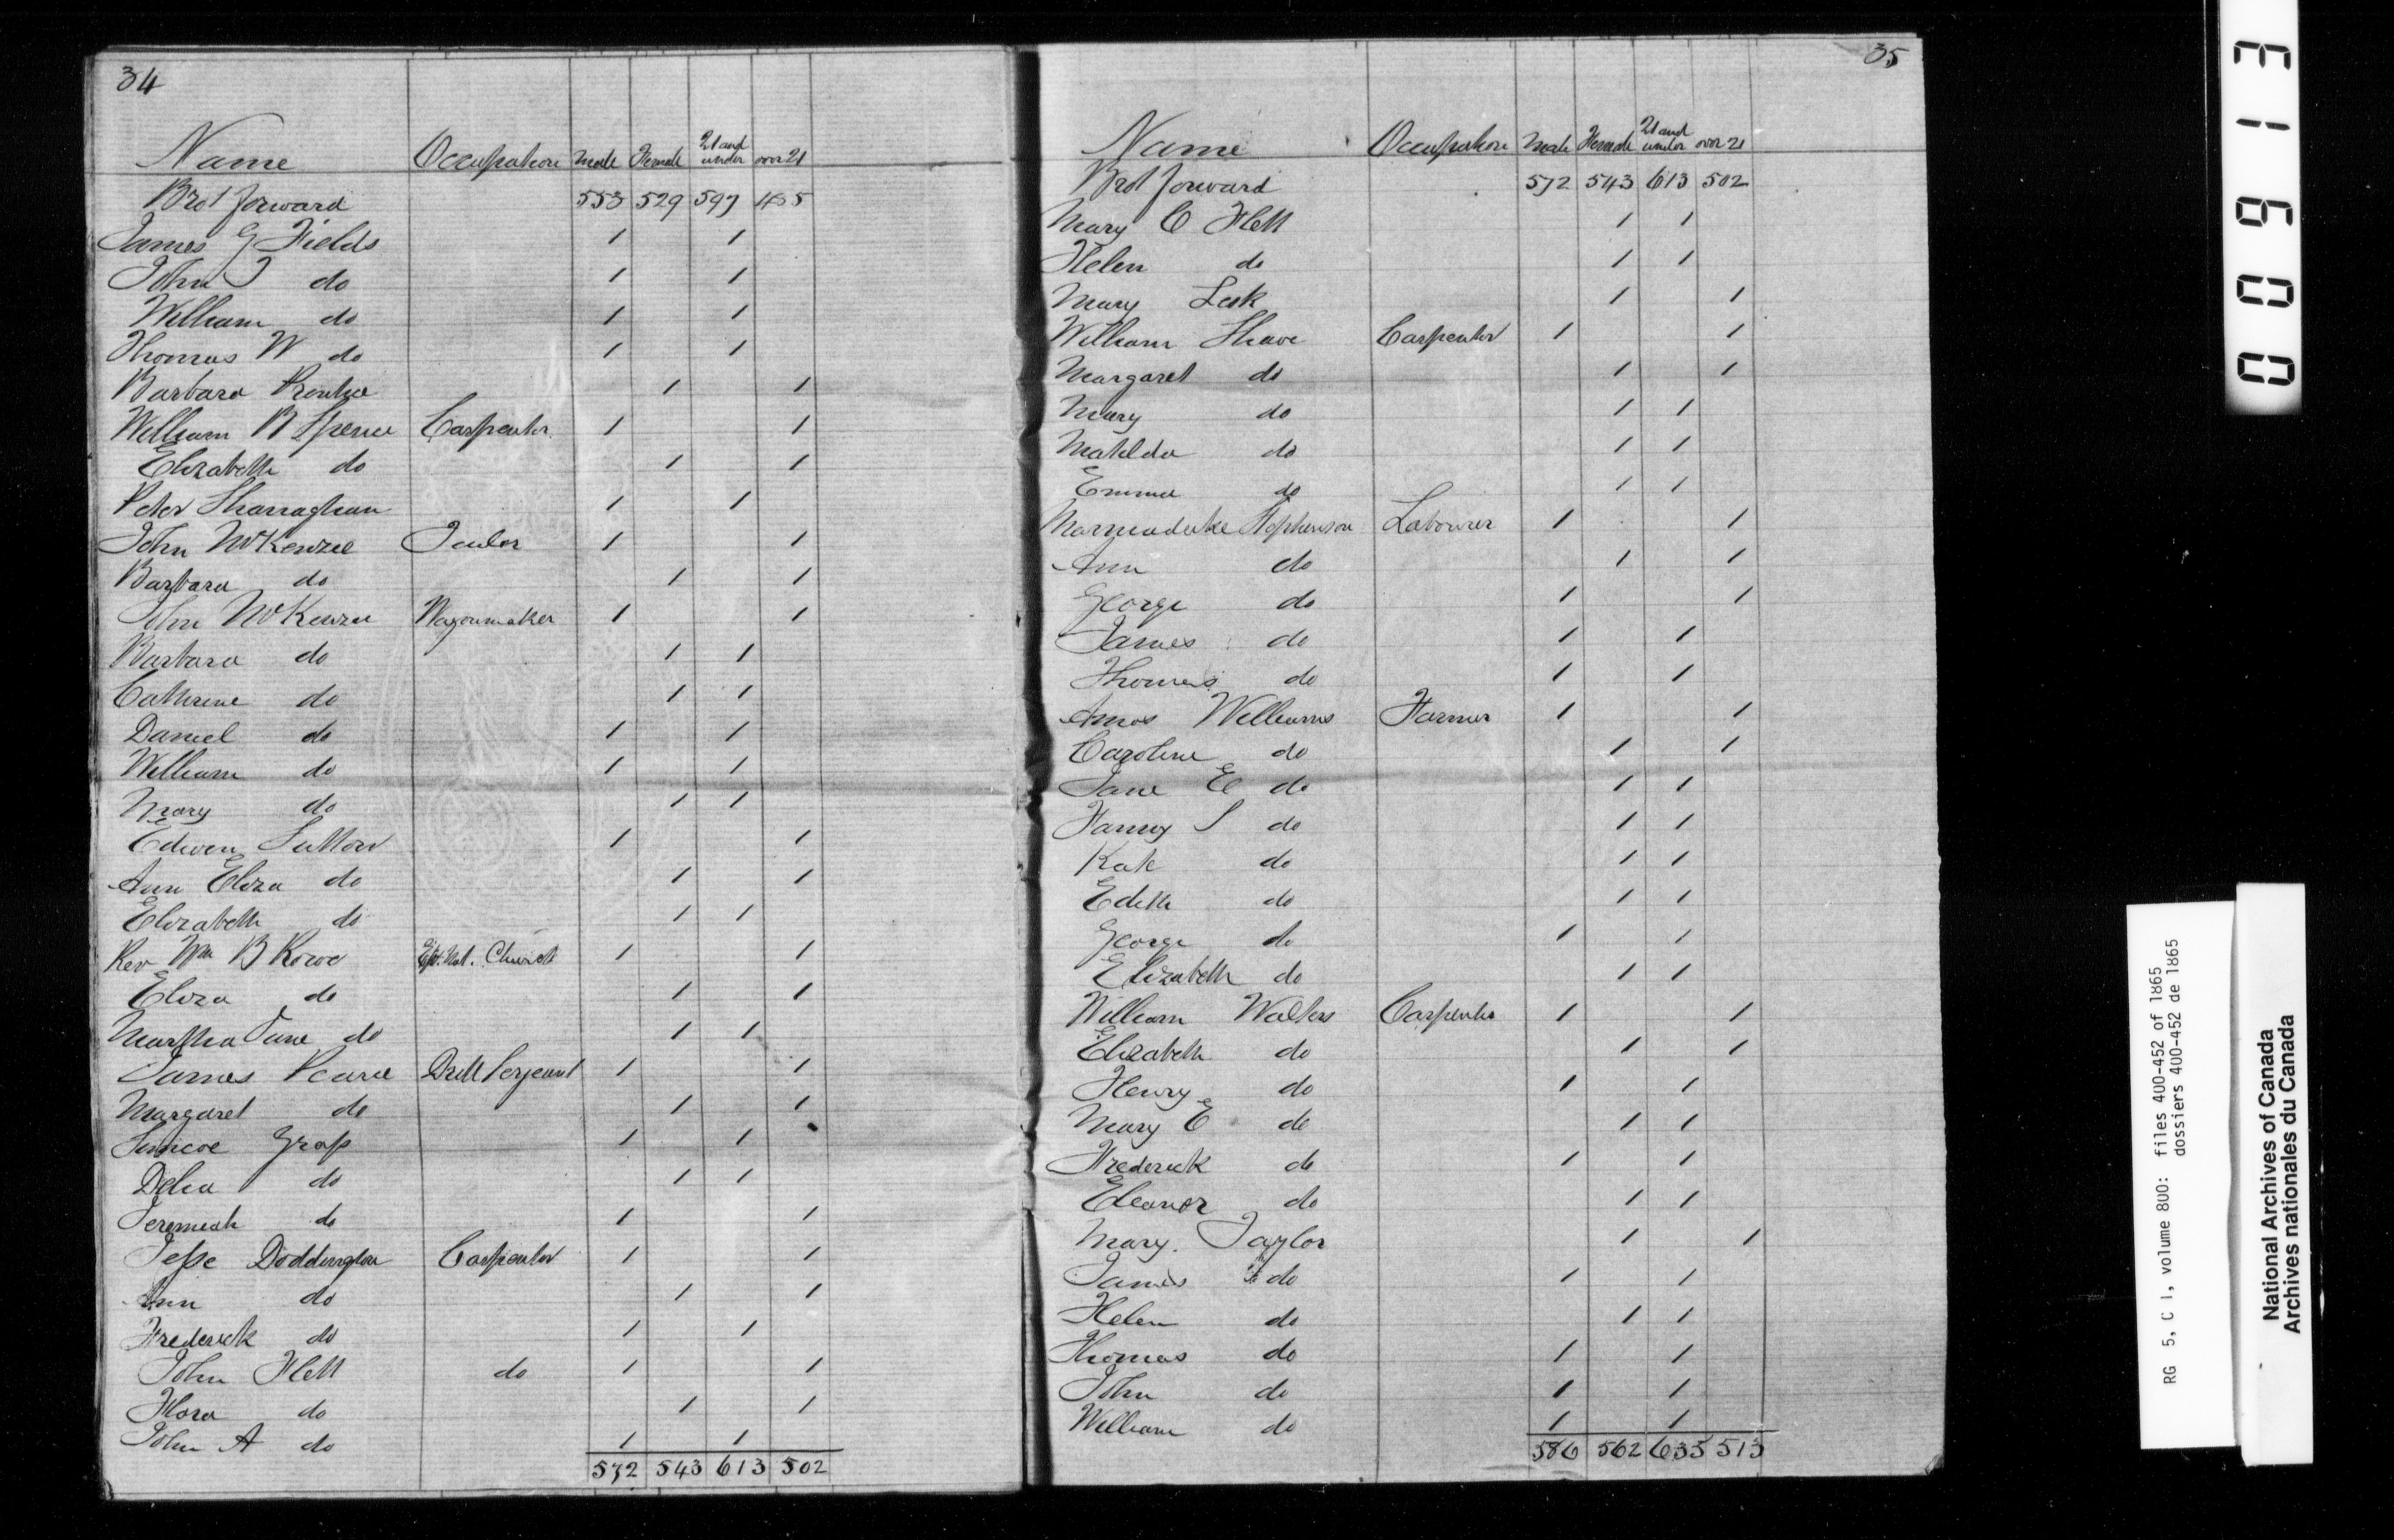 34
Name Occupation Male Female 21 and under over 21
Brot forward 553 529 597 485
James G Fields 1 1
John T do 1 1
William do 1 1
Thomas W do 1 1
Barbara 1 1
William B Spence Carpenter 1 1
Elizabeth do 1 1
Peter Sharraghan 1 1
John McKenzie Tailor 1 1
Barbara do 1 1
John McKenzie Wagonmaker 1 1
Barbara do 1 1
Cathrine do 1 1
Daniel do 1 1
William do 1 1
Mary do 1 1
Edwen Sutton 1 1
Ann Eliza do 1 1
Elizabeth do 1 1
Rev Wm B Rowe Church 1 1
Eliza do 1 1
Martha Jane do 1 1
James Pearce Drill Serjeant 1 1
Margaret do 1 1
Simcoe Grass 1 1
Delia do 1 1
Jeremiah do 1 1
Jesse Doddington Carpenter 1 1
Ann do 1 1
Frederick do 1 1
John Flett do 1 1
Flora do 1 1
John A do 1 1
572 543 613 502
35
Name Occupation Male Female 21 and under over 21
Brot forward 572 543 613 502
Mary C Flett 1 1
Helen do 1 1
Mary Lesk 1 1
William Shave Carpenter 1 1
Margaret do 1 1
Mary do 1 1
Matilda do 1 1
Emma do 1 1
Marmaduke Stephenson Labourer 1 1
Ann do 1 1
George do 1 1
James do 1 1
Thomas do 1 1
Amos Williams Farmer 1 1
Caroline do 1 1
Jane E do 1 1
Fanny S do 1 1
Kate do 1 1
Edith do 1 1
George do 1 1
Elizabeth do 1 1
William Walters Carpenter 1 1
Elizabeth do 1 1
Henry do 1 1
Mary E do 1 1
Frederick do 1 1
Eleanor do 1 1
Mary Taylor 1 1
James do 1 1
Helen do 1 1
Thomas do 1 1
John do 1 1
William do 1 1
586 562 635 513
000913
RG 5, C 1, volume 800: files 400-452 of 1865
dossiers 400-452 de 1865
National Archives of Canada
Archives nationales du Canada